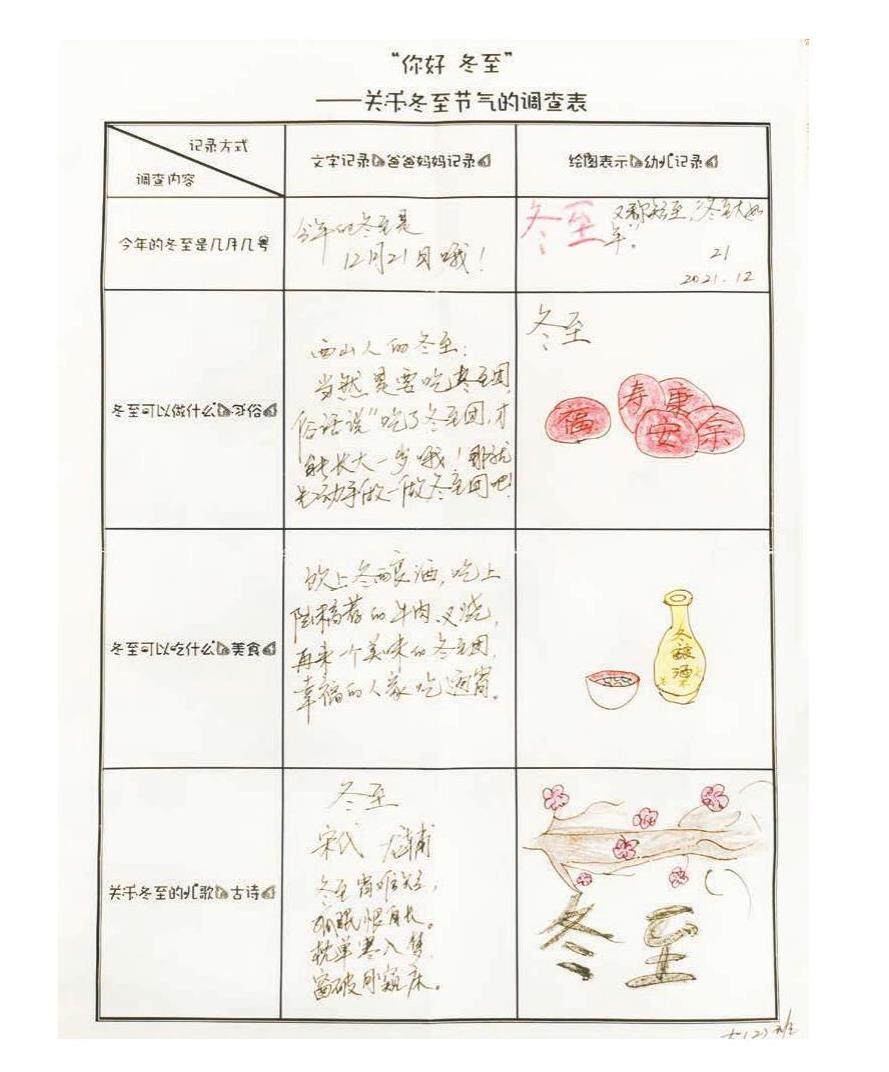 “你好 冬至”
——关于冬至节气的调查表
记录方式
调查内容
文字记录（爸爸妈妈记录）
绘图表示（幼儿记录）
今年的冬至是几月几号
今年的冬至是
12月21日哦！
冬至 又称短至，“冬至大如
年”。
21
2021.12
冬至可以做什么（习俗）
西山人的冬至：
当然是要吃冬至团，
俗话说“吃了冬至团，才
能长大一岁哦！那就
先动手做一做冬至团吧！
冬至
福 寿 康 安 余
冬至可以吃什么（美食）
饮上冬酿酒，吃上
陆稿荐的牛肉、叉烧，
再来一个美味的冬至团，
幸福的人家吃通宵。
冬酿酒
关于冬至的儿歌（古诗）
冬至
宋代
冬至宵难短，
眠恨自长。
枕单寒入梦，
窗破月窥床。
冬至
大(2)班